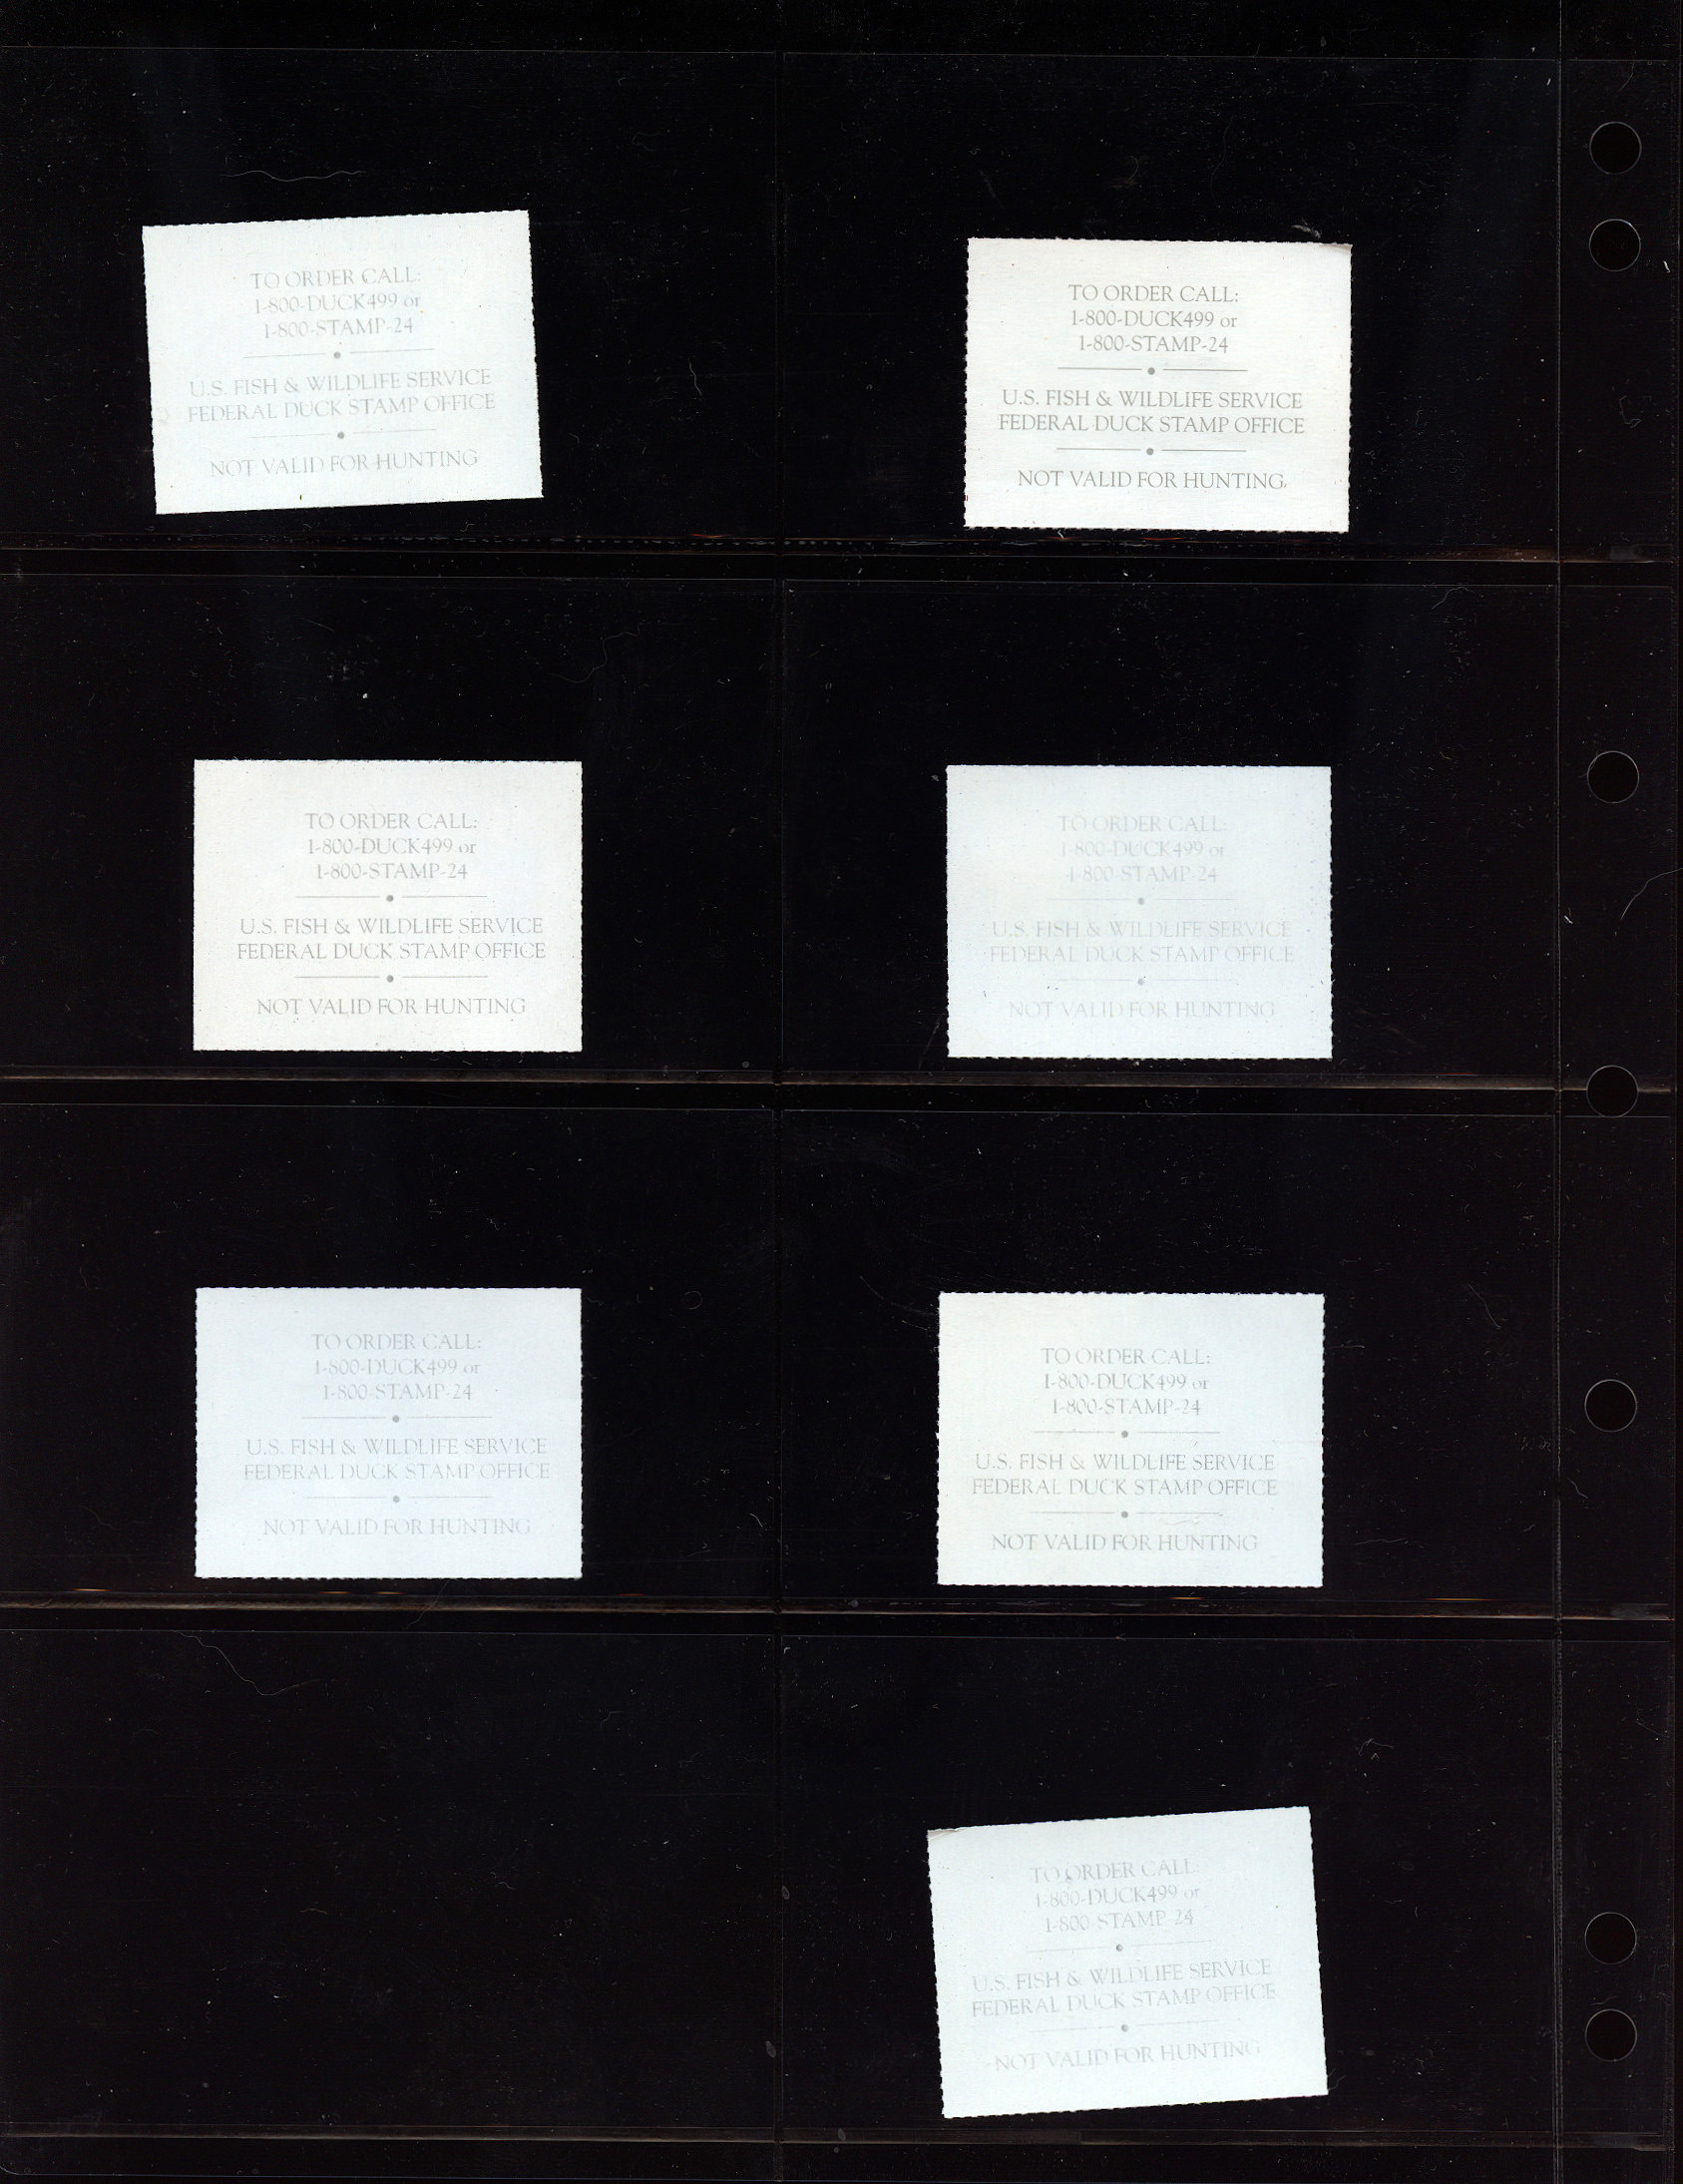 TO ORDER CALL:
1-800-DUCK499 or
1-800-STAMP-24
U.S. FISH & WILDLIFE SERVICE
FEDERAL DUCK STAMP OFFICE
NOT VALID FOR HUNTING
TO ORDER CALL:
1-800-DUCK499 or
1-800-STAMP-24
U.S. FISH & WILDLIFE SERVICE
FEDERAL DUCK STAMP OFFICE
NOT VALID FOR HUNTING
TO ORDER CALL:
1-800-DUCK499 or
1-800-STAMP-24
U.S. FISH & WILDLIFE SERVICE
FEDERAL DUCK STAMP OFFICE
NOT VALID FOR HUNTING
TO ORDER CALL:
1-800-DUCK499 or
1-800-STAMP-24
U.S. FISH & WILDLIFE SERVICE
FEDERAL DUCK STAMP OFFICE
NOT VALID FOR HUNTING
TO ORDER CALL:
1-800-DUCK499 or
1-800-STAMP-24
U.S. FISH & WILDLIFE SERVICE
FEDERAL DUCK STAMP OFFICE
NOT VALID FOR HUNTING
TO ORDER CALL:
1-800-DUCK499 or
1-800-STAMP-24
U.S. FISH & WILDLIFE SERVICE
FEDERAL DUCK STAMP OFFICE
NOT VALID FOR HUNTING
TO ORDER CALL:
1-800-DUCK499 or
1-800-STAMP-24
U.S. FISH & WILDLIFE SERVICE
FEDERAL DUCK STAMP OFFICE
NOT VALID FOR HUNTING